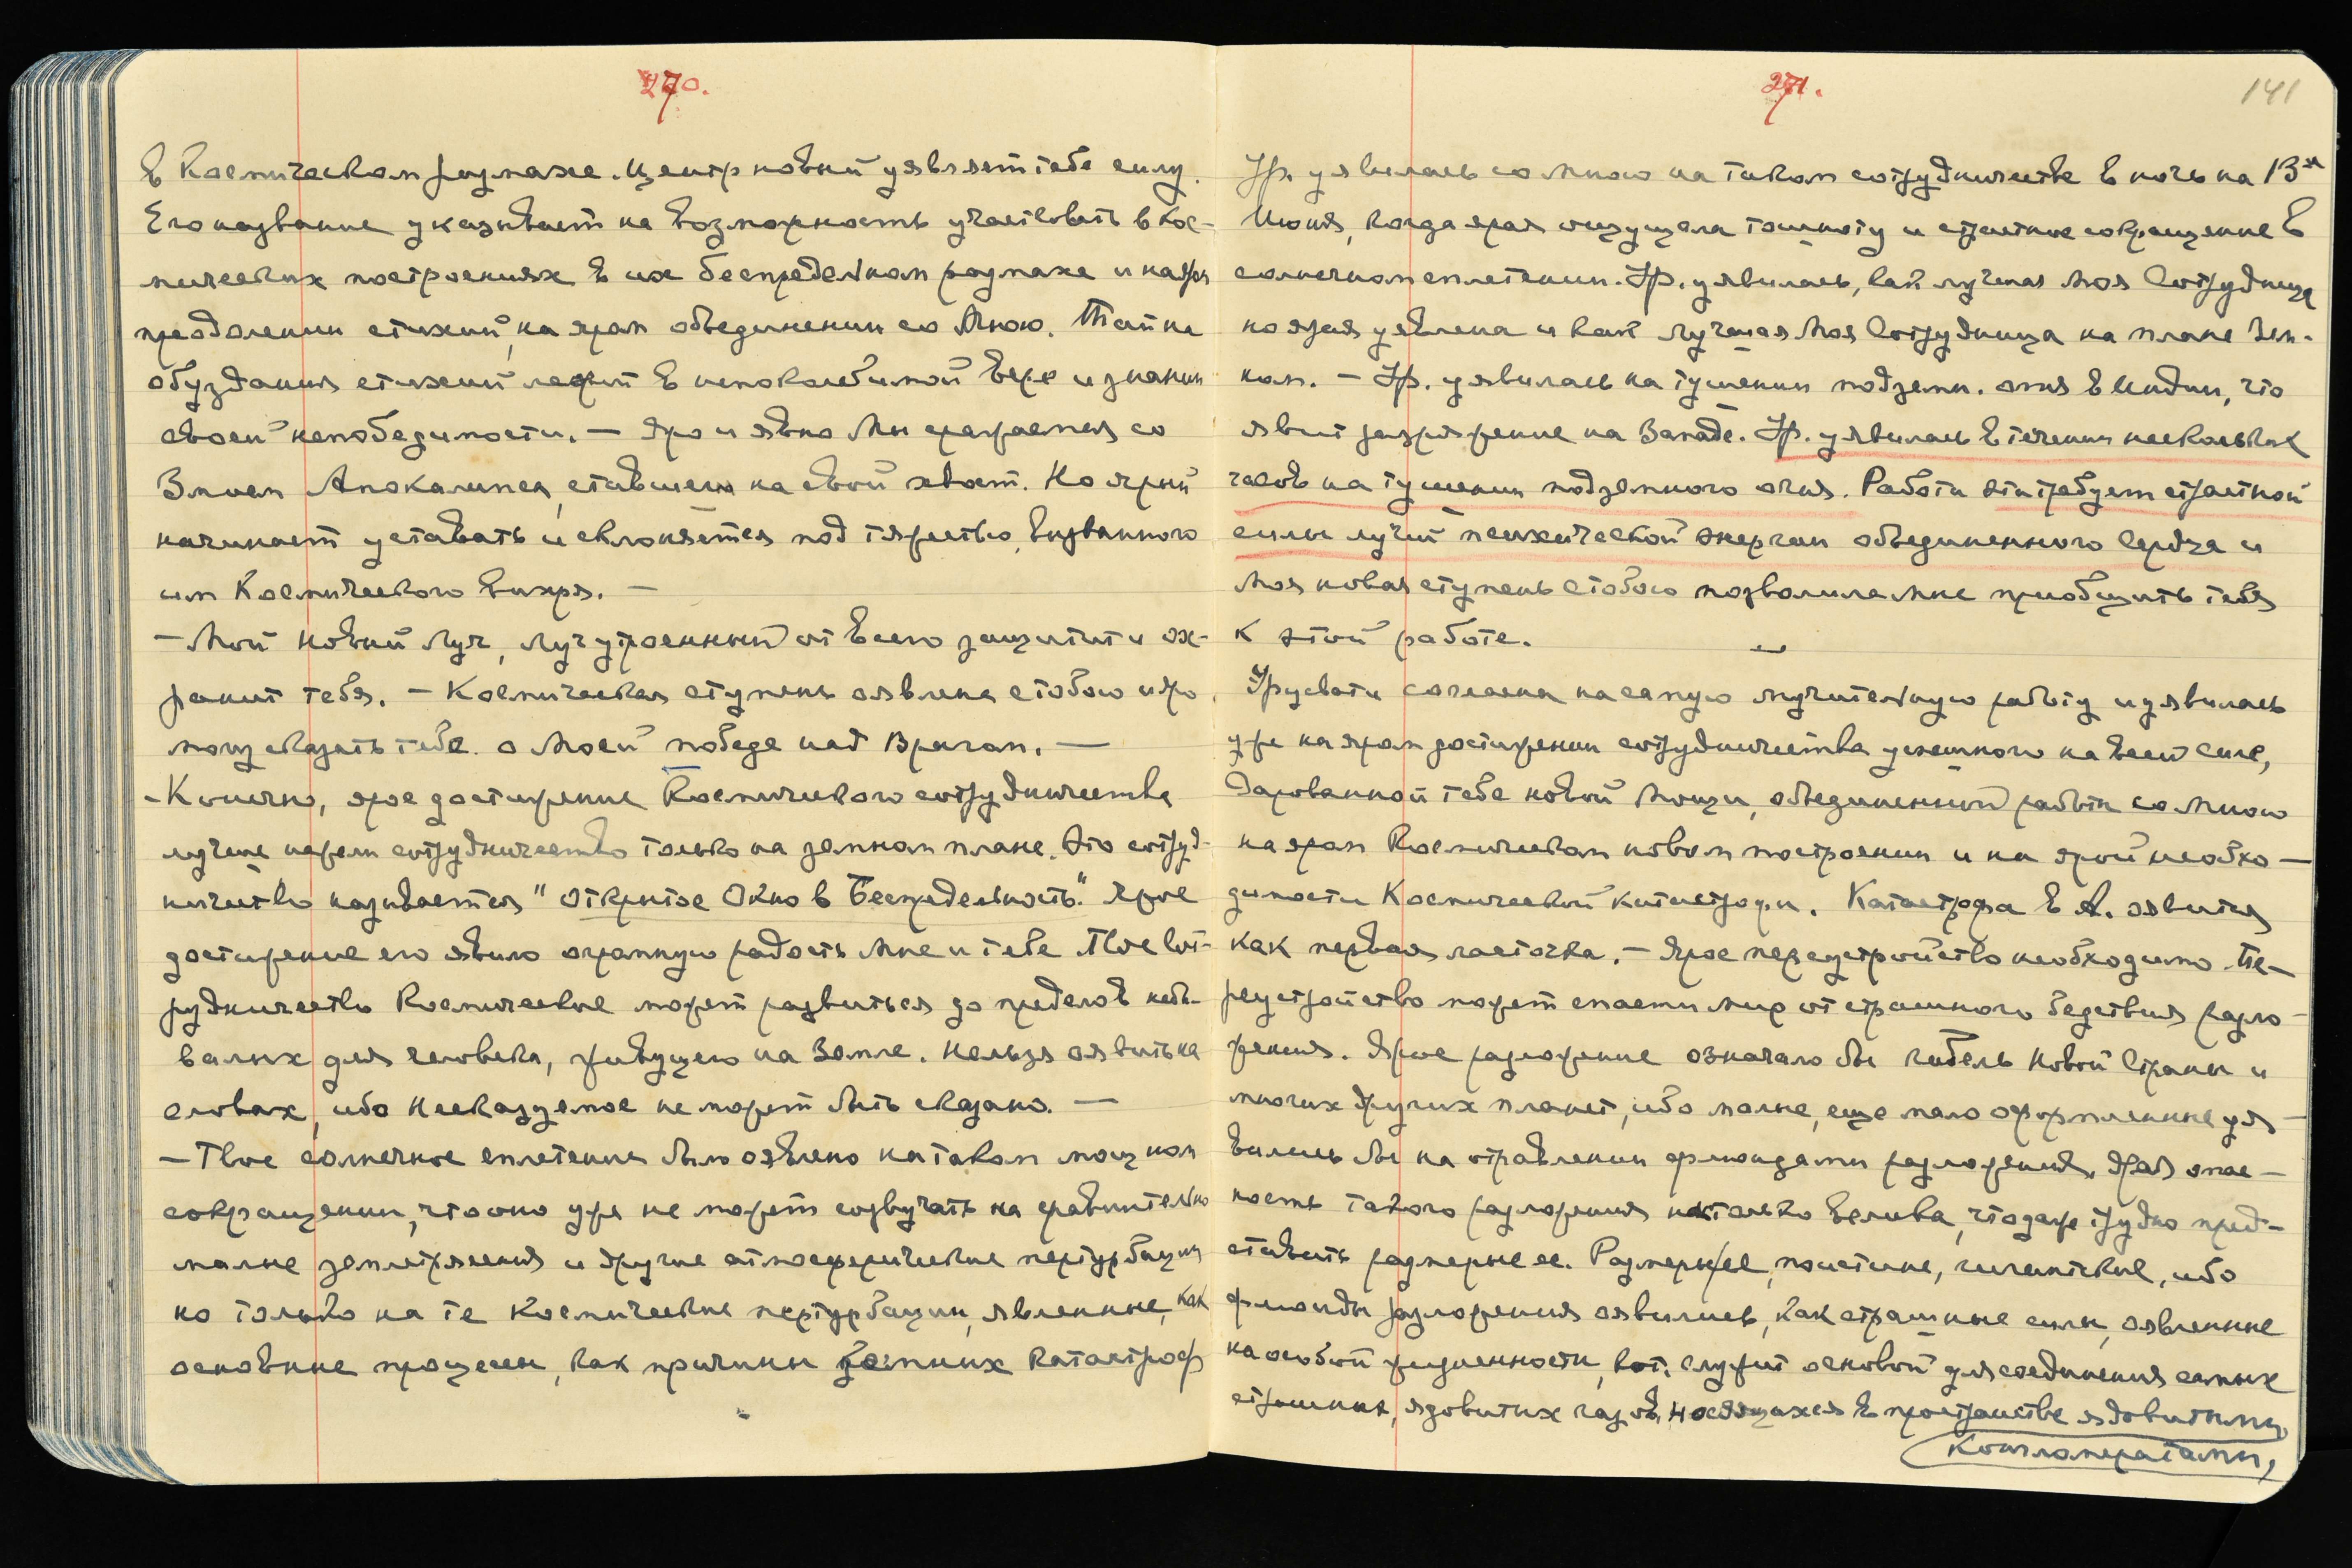 270.
в Космическом размахе. Центр новый уявляет тебе силу.
Его название указывает на возможность участвовать в Кос-
мических построениях в их беспредельном размахе и на яром
преодолении стихий, на яром объединении со Мною. Тайна
обуздания стихий лежит в непоколебимой вере и знании
своей непобедимости. — Яро и явно Мы сражаемся со
Змием Апокалипса, ставшем на свой хвост. Но ярый
начинает уставать и склоняется под тяжестью, вызванного
им Космического вихря. —
— Мой новый Луч, Луч утроенный от всего защитит и ох-
ранит тебя. — Космическая ступень оявлена с тобою и яро
могу сказать тебе о Моей победе над Врагом. —
- Конечно, ярое достижение Космического сотрудничества
лучше нежели сотрудничество только на земном плане. Это сотруд-
ничество называется "Открытое Окно в Беспредельность." Ярое
достижение его явило огромную радость Мне и тебе. Твое Сот-
рудничество Космическое может развиться до пределов небы-
валых для человека, живущего на Земле. Нельзя оявить на
словах, ибо Несказуемое не может быть сказано. —
— Твое солнечное сплетение было оявлено на таком мощном
сокращении, что оно уже не может созвучать на сравнительно
малые землетрясения и другие атмосферические пертурбации
но только на те Космические пертурбации, явленные, как
основные процессы, как причины земных катастроф
271.
141
Ур. уявилась со Мною на таком сотрудничестве в ночь на 13ое
Июня, когда ярая ощущала тошноту и страшное сокращение в
солнечном сплетении. Ур. уявилась, как лучшая Моя Сотрудница
но ярая уявлена и как лучшая Моя Сотрудница на плане Зем-
ном. — Ур. уявилась на тушении подземн. огня в Индии, что
явит разряжение на Западе. Ур. уявилась в течении нескольких
часов на тушении подземного огня. Работа эта требует страшной
силы лучей психической энергии объединенного Сердца и
Моя новая ступень с тобою позволила Мне приобщить тебя
к этой работе.
Урусвати согласна на самую мучительную работу и уявилась
уже на яром достижении сотрудничества успешного на всей силе,
Дарованной тебе новой Мощи, объединенной работы со Мною
на яром Космическом новом построении и на ярой необхо-
димости Космической катастрофы. Катастрофа в А. оявится
как первая ласточка. — Ярое переустройство необходимо. Пе-
реустройство может спасти мир от страшного бедствия разло-
жения. Ярое разложение означало бы гибель Новой Страны и
многих других планет, ибо малые, еще мало оформленные уя-
вились бы на отравлении флюидами разложения. Ярая опас-
ность такого разложения настолько велика, что даже трудно пред-
ставить размеры ее. Размеры ее, поистине, гигантские, ибо
флюиды разложения оявились, как страшные силы, оявленные
на особой жизненности, кот. служит основой для соединения самых
страшных, ядовитых газов, носящихся в пространстве ядовитыми
конгломератами,